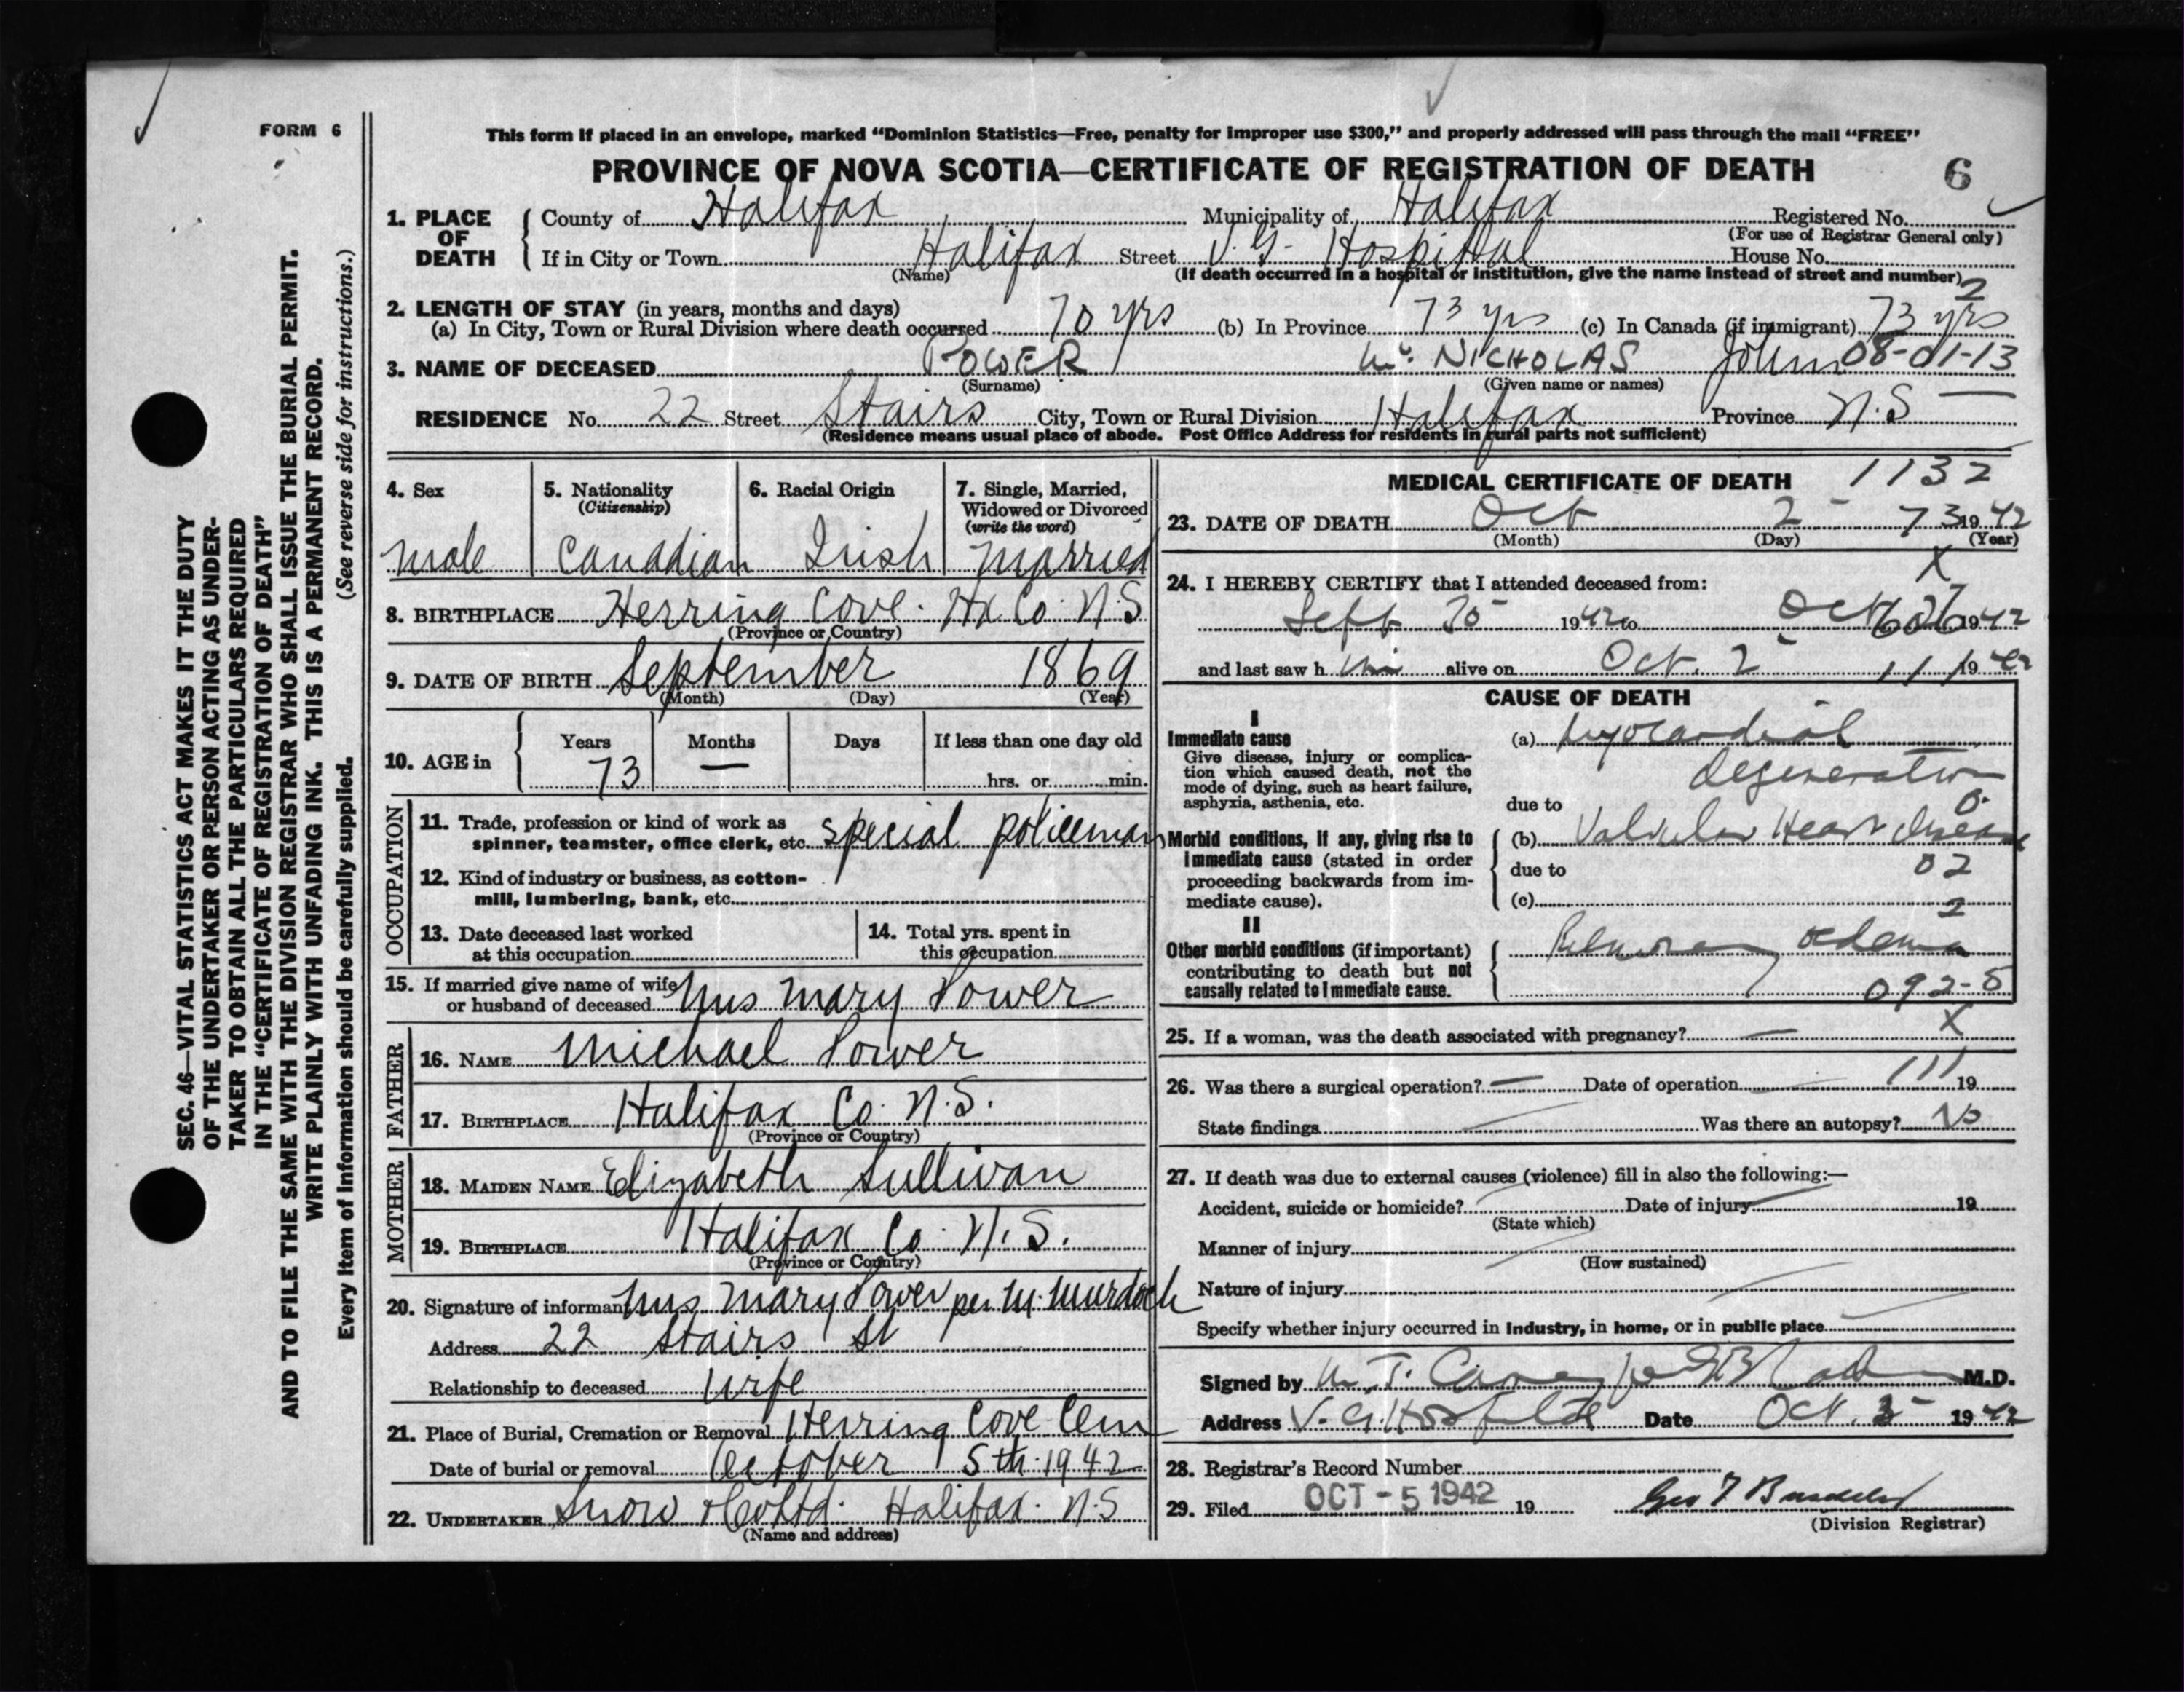 FORM 6
This form if placed in an envelope, marked “Dominion Statistics—Free, penalty for improper use $300,” and properly addressed will pass through the mail “FREE”
PROVINCE OF NOVA SCOTIA—CERTIFICATE OF REGISTRATION OF DEATH 6
1. PLACE OF DEATH County of Halifax Municipality of Halifax Registered No.
(For use of Registrar General only)
If in City or Town Halifax Street V. G. Hospital House No.
(Name) (If death occurred in a hospital or institution, give the name instead of street and number) 2
2. LENGTH OF STAY (in years, months and days)
(a) In City, Town or Rural Division where death occurred 70 yrs (b) In Province 73 yrs (c) In Canada (if immigrant) 73 yrs
3. NAME OF DECEASED POWER NICHOLAS John 08-01-13
(Surname) (Given name or names)
RESIDENCE No. 22 Street Stairs City, Town or Rural Division Halifax Province N.S
(Residence means usual place of abode. Post Office Address for residents in rural parts not sufficient)
4. Sex 5. Nationality (Citizenship) 6. Racial Origin 7. Single, Married, Widowed or Divorced (write the word)
male Canadian Irish married
8. BIRTHPLACE Herring Cove. Hx Co. N.S
(Province or Country)
9. DATE OF BIRTH September 1869
(Month) (Day) (Year)
10. AGE in Years Months Days If less than one day old
73 — hrs. or min.
OCCUPATION
11. Trade, profession or kind of work as
spinner, teamster, office clerk, etc. special policeman
12. Kind of industry or business, as cotton-
mill, lumbering, bank, etc.
13. Date deceased last worked
at this occupation
14. Total yrs. spent in
this occupation
15. If married give name of wife
or husband of deceased Mrs Mary Power
FATHER
16. NAME Michael Power
17. BIRTHPLACE Halifax Co. N.S.
(Province or Country)
MOTHER
18. MAIDEN NAME Elizabeth Sullivan
19. BIRTHPLACE Halifax Co N.S.
(Province or Country)
20. Signature of informant Mrs Mary Power per M. Murdoch
Address 22 Stairs St
Relationship to deceased wife
21. Place of Burial, Cremation or Removal Herring Cove Cem
Date of burial or removal October 5th 1942
22. UNDERTAKER Snow & Co Ltd. Halifax. N.S
(Name and address)
MEDICAL CERTIFICATE OF DEATH 1132
23. DATE OF DEATH Oct 2 - 73 1942
(Month) (Day) (Year)
X
24. I HEREBY CERTIFY that I attended deceased from:
Sept 30 1942 to Oct 1942
and last saw h im alive on Oct. 2 111 1942
CAUSE OF DEATH
I
Immediate cause
Give disease, injury or complica-
tion which caused death, not the
mode of dying, such as heart failure,
asphyxia, asthenia, etc.
(a) Myocardial
degeneration
due to
Morbid conditions, if any, giving rise to
immediate cause (stated in order
proceeding backwards from im-
mediate cause).
(b) Valvular Heart disease
due to 02
(c) 2
II
Other morbid conditions (if important)
contributing to death but not
causally related to immediate cause.
Pulmonary oedema
092-5
X
25. If a woman, was the death associated with pregnancy? —
26. Was there a surgical operation? — Date of operation 111 19
State findings Was there an autopsy? No
27. If death was due to external causes (violence) fill in also the following:—
Accident, suicide or homicide? Date of injury 19
(State which)
Manner of injury
(How sustained)
Nature of injury
Specify whether injury occurred in industry, in home, or in public place
Signed by M.D.
Address V. G. Hospital Date Oct. 1942
28. Registrar's Record Number
29. Filed OCT - 5 1942 19
(Division Registrar)
SEC. 46—VITAL STATISTICS ACT MAKES IT THE DUTY
OF THE UNDERTAKER OR PERSON ACTING AS UNDER-
TAKER TO OBTAIN ALL THE PARTICULARS REQUIRED
IN THE “CERTIFICATE OF REGISTRATION OF DEATH”
AND TO FILE THE SAME WITH THE DIVISION REGISTRAR WHO SHALL ISSUE THE BURIAL PERMIT.
WRITE PLAINLY WITH UNFADING INK. THIS IS A PERMANENT RECORD.
Every item of information should be carefully supplied. (See reverse side for instructions.)